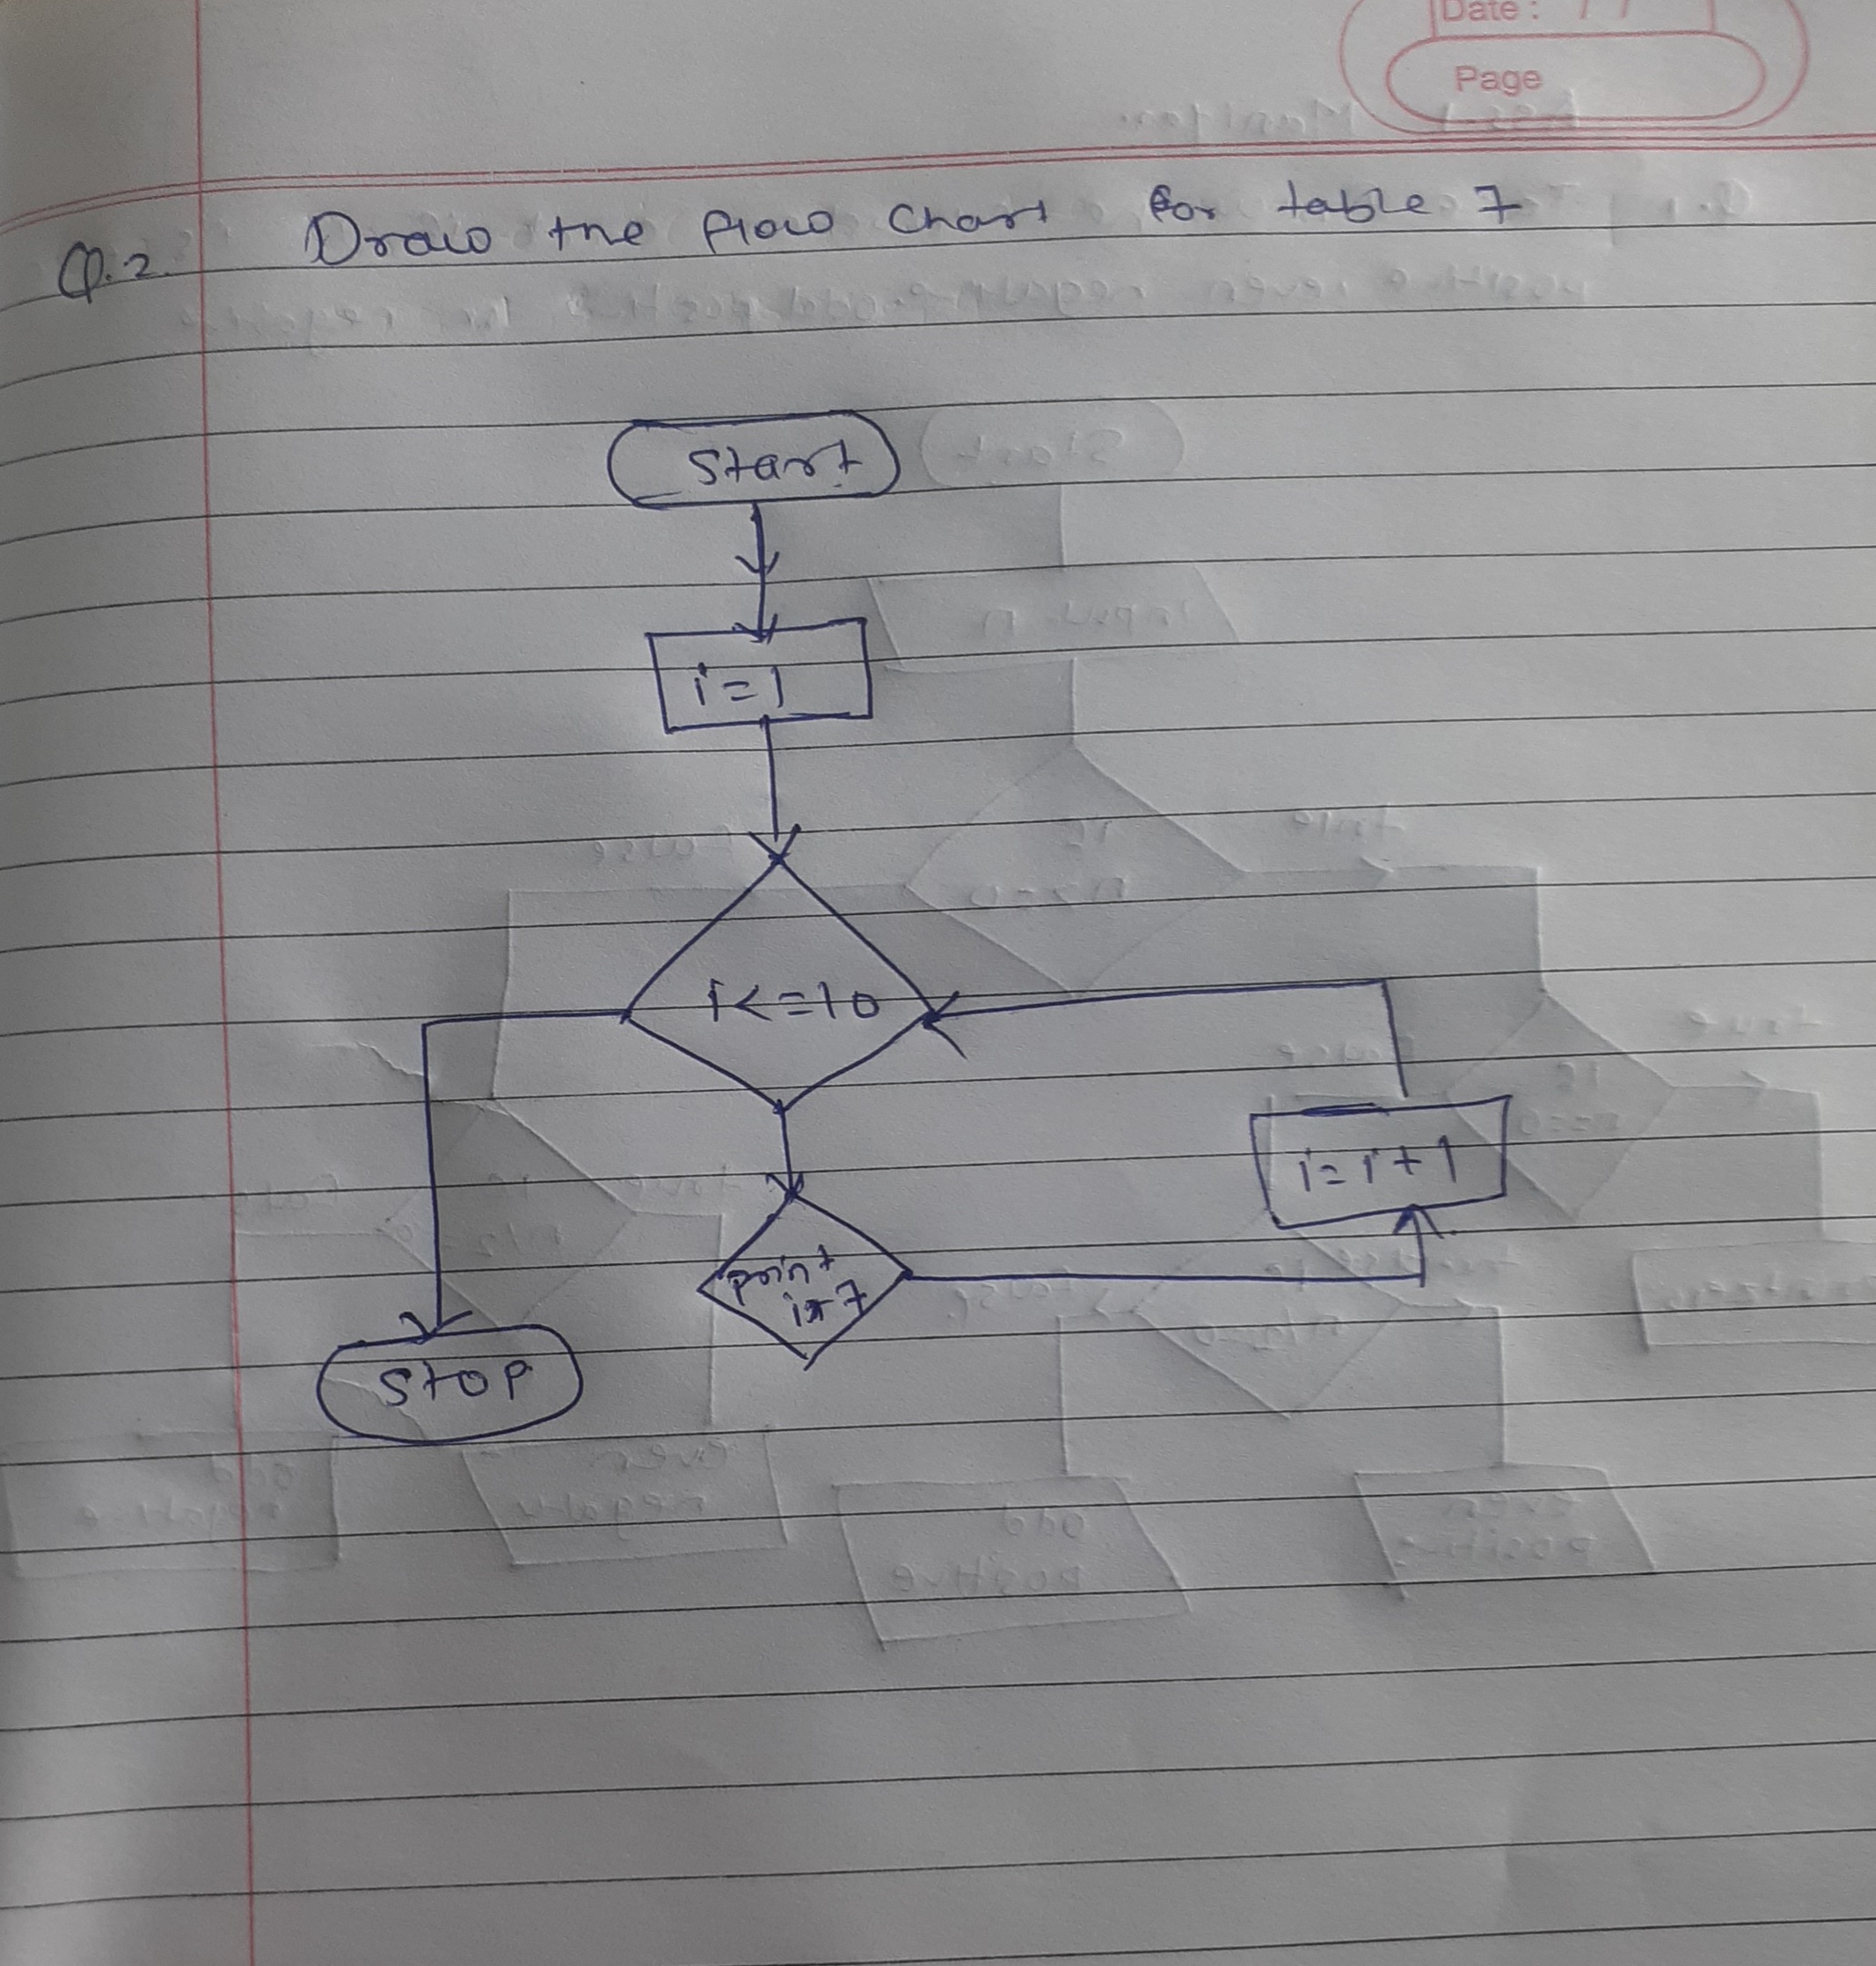 Date : / /
Page
Q.2. Draw the flow Chart for table 7
Start
i=1
i<=10
i=i+1
print
i*7
Stop